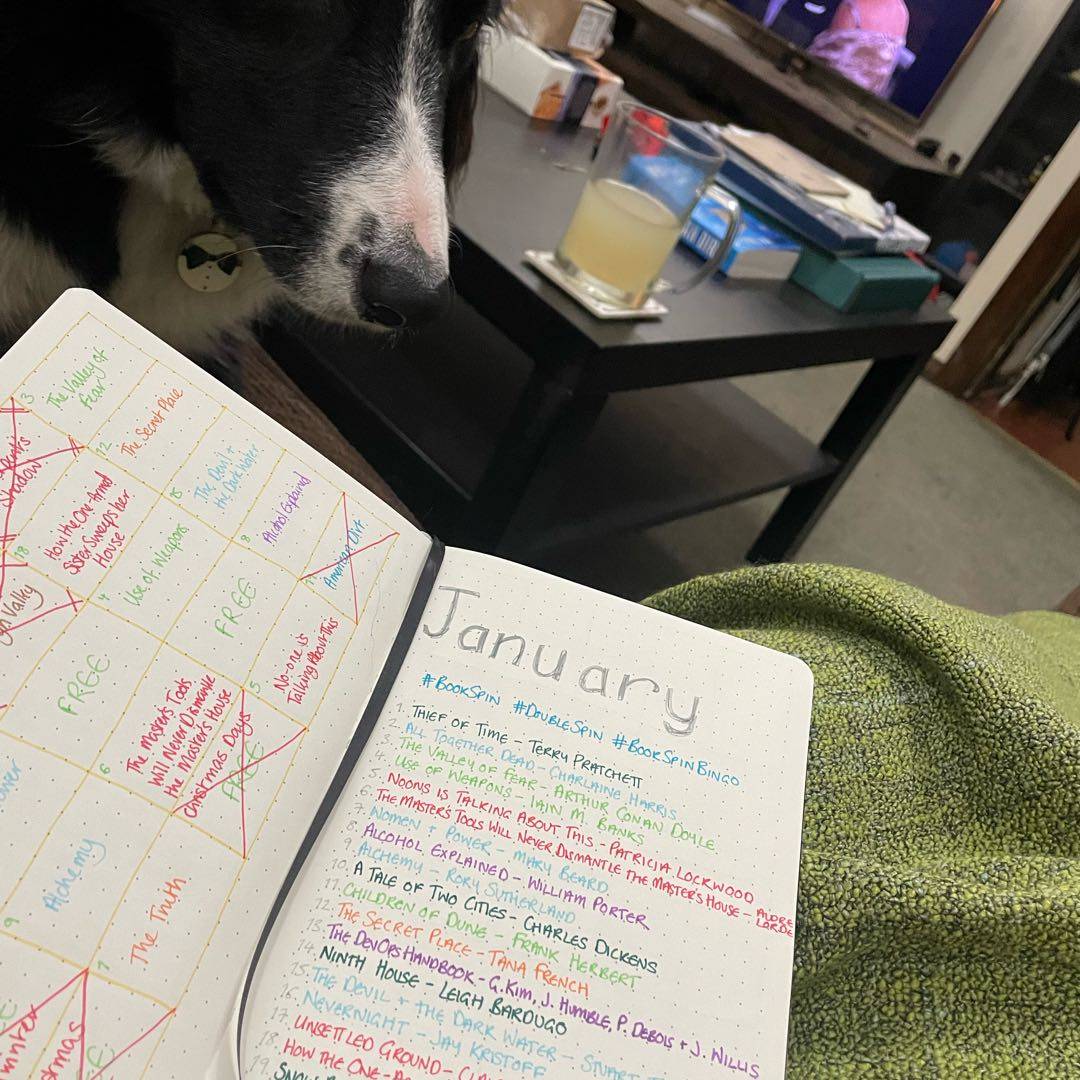 3
The Valley of
Fear
12
The Secret Place
Shadow
18
How the One-Armed
Sister Sweeps her
House
15
The Devil +
the Dark Water
Valley
4
Use of Weapons
8
Alcohol Explained
FREE
FREE
American Dirt
6
The Master's Tools
Will Never Dismantle
the Master's House
5
No-one is
Talking About This
Christmas Days
FREE
9
Alchemy
The Truth
January
#BOOKSPIN #DOUBLESPIN #BOOKSPINBINGO
1. THIEF OF TIME – TERRY PRATCHETT
2. ALL TOGETHER DEAD – CHARLAINE HARRIS
3. THE VALLEY OF FEAR – ARTHUR CONAN DOYLE
4. USE OF WEAPONS – IAIN M. BANKS
5. NOONE IS TALKING ABOUT THIS – PATRICIA LOCKWOOD
6. THE MASTER'S TOOLS WILL NEVER DISMANTLE THE MASTER'S HOUSE – AUDRE LORDE
7. WOMEN + POWER – MARY BEARD
8. ALCOHOL EXPLAINED – WILLIAM PORTER
9. ALCHEMY – RORY SUTHERLAND
10. A TALE OF TWO CITIES – CHARLES DICKENS
11. CHILDREN OF DUNE – FRANK HERBERT
12. THE SECRET PLACE – TANA FRENCH
13. THE DEVOPS HANDBOOK – G. KIM, J. HUMBLE, P. DEBOIS + J. WILLIS
14. NINTH HOUSE – LEIGH BARDUGO
15. THE DEVIL + THE DARK WATER – STUART
16. NEVERNIGHT – JAY KRISTOFF
17. UNSETTLED GROUND –
18. HOW THE ONE-
19.